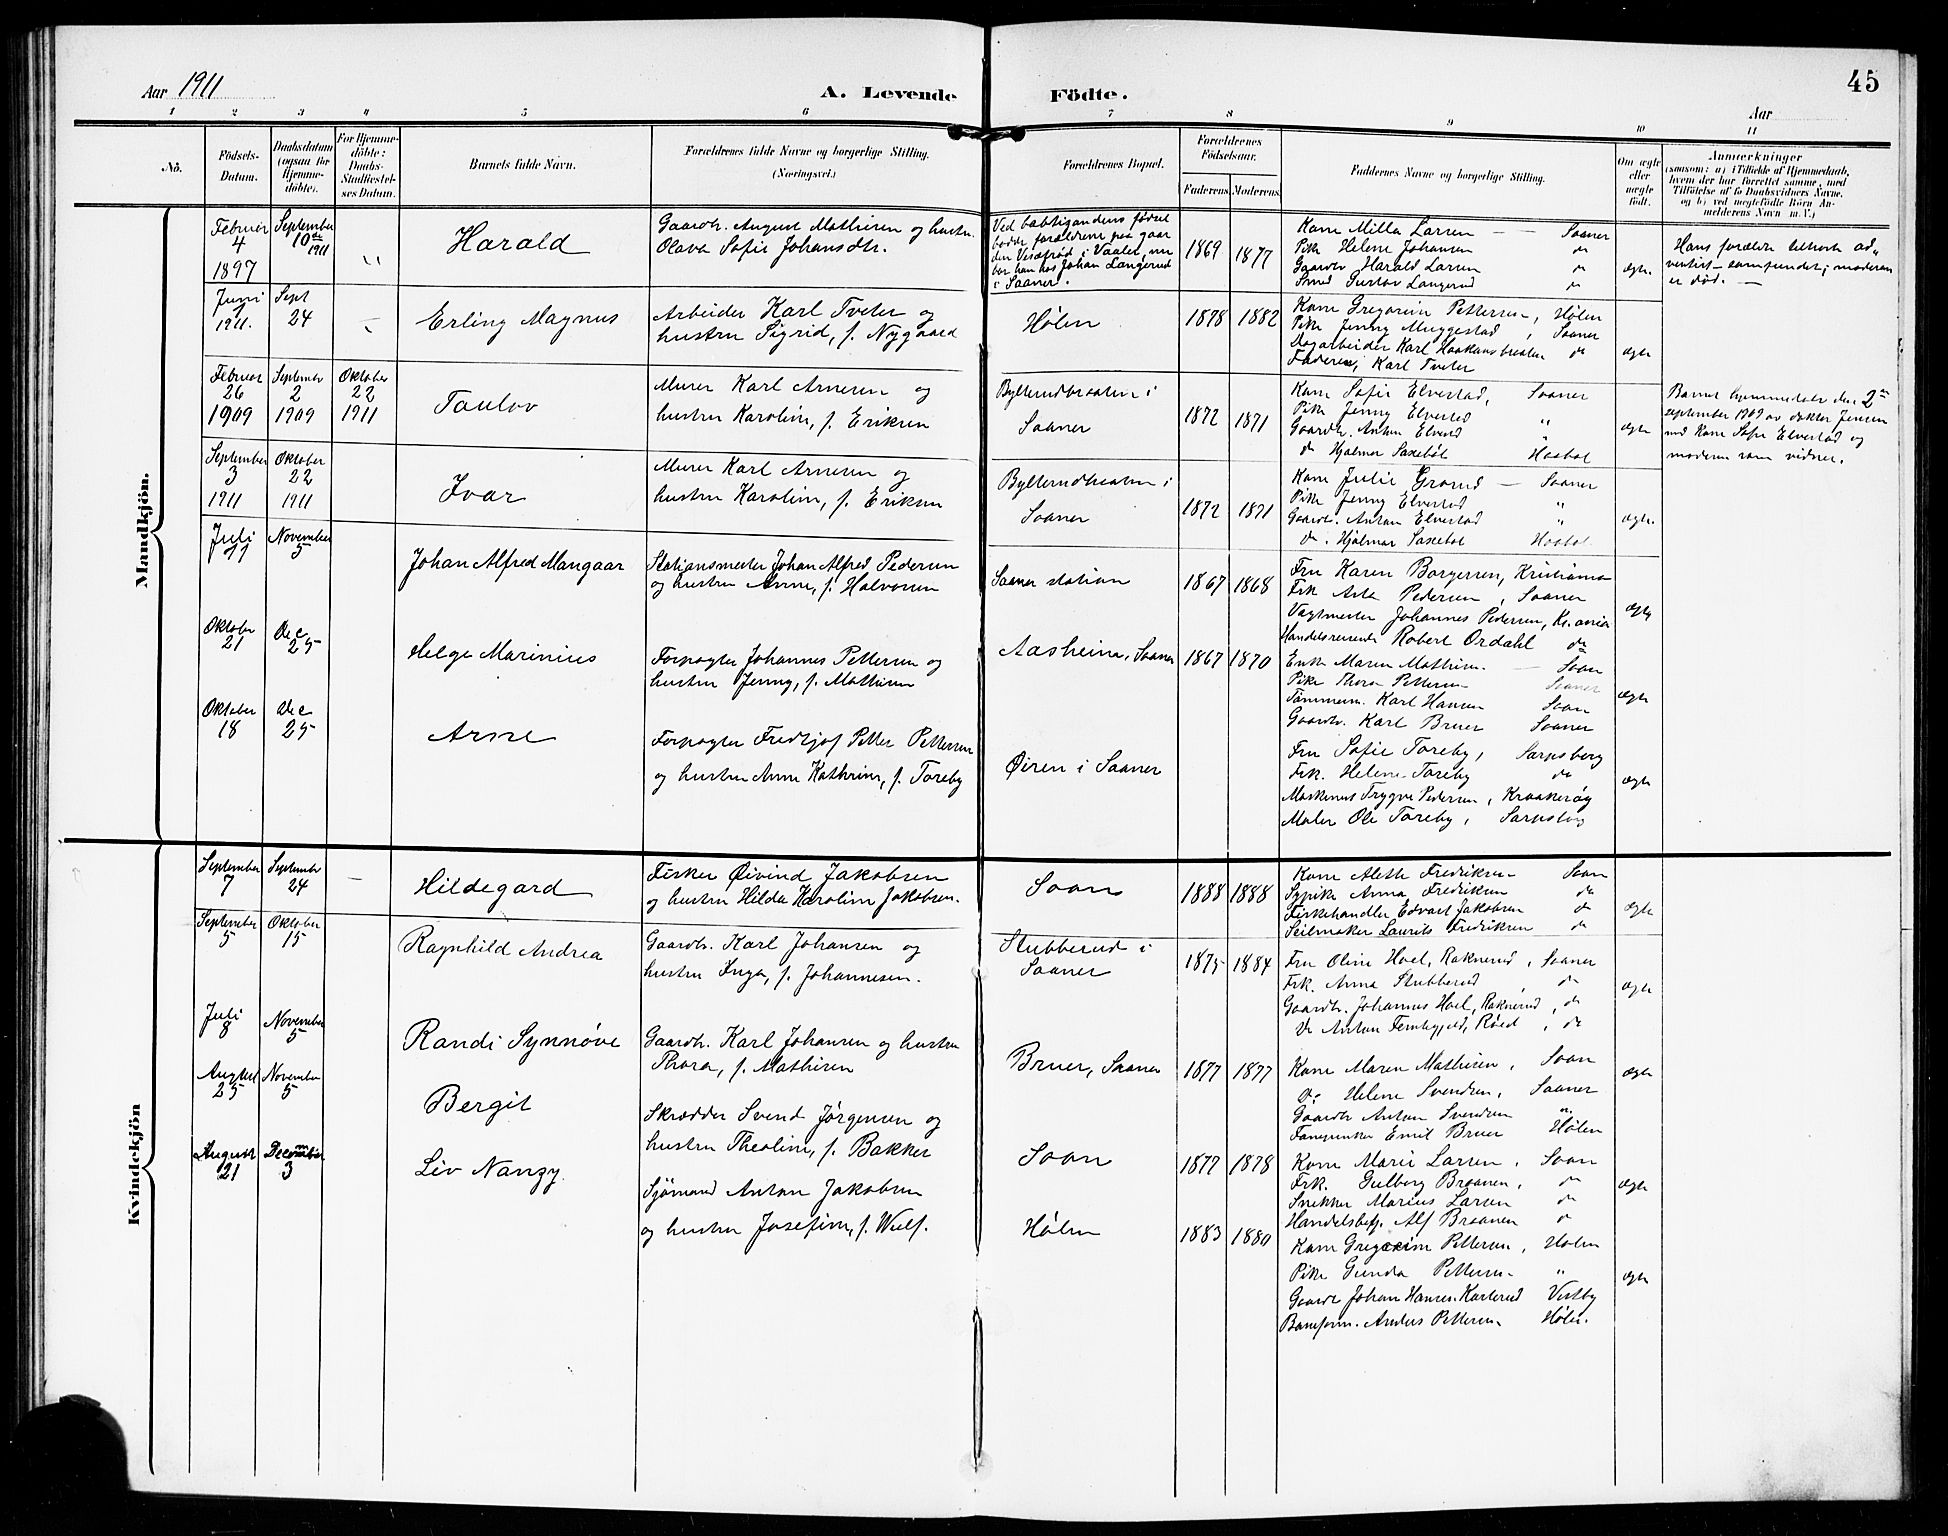 Aar 1911
A. Levende Födte.
45
Aar
1 2 3 4 5 6 7 8 9 10 11
No.
Födsels-Datum.
Daabsdatum (ogsaa for Hjemmedöbte).
For Hjemmedöbte: Daabs-Stadfæstelses Datum.
Barnets fulde Navn.
Forældrenes fulde Navne og borgerlige Stilling. (Næringsvei.)
Forældrenes Bopæl.
Forældrenes Födselsaar.
Faderens. Moderens.
Faddernes Navne og borgerlige Stilling.
Om ægte eller uægte födt.
Anmærkninger
(saasom: a) i Tilfælde af Hjemmedaab, hvem der har forrettet samme, med Tilföielse af to Daabsvidners Navne, og b) ved uægtefödte Börn Anmelderens Navn m. V.)
Mandkjön.
Februar 4 1897
September 10de 1911
"
Harald
Gaardbr. August Mathisen og hustr.
Olava Sofie Johansdtr.
Ved babtigandens fødsel
bodde forældrene paa gaar
den Vesdfrød i Vaaler, nu
bor han hos Johan Langerud
i Saaner.
1869 1877
Kone Milla Larsen — Saaner
Pike Helene Johansen do
Gaardbr Harald Larsen do
Smed Gustav Langerud do
ægte.
Hans forældre tilhørte ad„
ventist-samfundet; moderen
er død. —
Juni 7 1911.
Sept 24
Erling Magnus
Arbeider Karl Tveter og
hustru Sigrid, f. Nygaard
Hølen
1878 1882
Kone Gregorine Pettersen, Hølen
Pike Jenny Muggestad, Saaner
Dagarbeider Karl Haakansbraaten do
Faderen, Karl Tveter
ægte
Februar 26 1909
September 2 1909
Oktober 22 1911
Taulov
Murer Karl Arnesen og
hustru Karoline, f. Eriksen
Bylterudbraaten i
Saaner
1872 1871
Kone Sofie Elvestad, Saaner
Pike Jenny Elvestad "
Gaardbr. Anton Elvestad "
do Hjalmar Saxebøl Haabøl
ægte
Barnet hjemmedøbt den 2den
september 1909 av doktor Jensen
med kone Sofie Elvestad og
moderen som vidner.
September 3 1911
Oktober 22 1911
Ivar
Murer Karl Arnesen og
hustru Karoline, f. Eriksen
Bylterudbraaten i
Saaner
1872 1871
Kone Julie Grand — Saaner
Pike Jenny Elvestad "
Gaardb. Anton Elvestad "
do. Hjalmar Saxebøl Haabøl
ægte.
Juli 11
November 5
Johan Alfred Mangaar
Stationsmester Johan Alfred Pedersen
og hustru Anne, f. Halvorsen
Saaner station
1867 1868
Fru Karen Borgersen, Kristiania
Frk Asta Pedersen, Saaner
Vagtmester Johannes Pedersen, Kr.ania
Handelsreisende Robert Ordahl do
ægte
Oktober 21
Dec 25
Helge Marinius
Forpagter Johannes Pettersen og
hustru Jenny, f. Mathisen
Aasheim, Saaner
1867 1870
Enke Maren Mathisen. — Saan
Pike Thora Pettersen Saaner
Tømmerm. Karl Hansen Saan
Gaardbr. Karl Bruer Saaner
ægte
Oktober 18
Dec 25
Arne
Forpagter Fredtjof Petter Pettersen
og hustru Anne Kathrine, f. Toreby
Øiren i Saaner
Fru Sofie Toreby, Sarpsborg
Frk. Helene Toreby do
Maskinist Trygve Pedersen, Kraakerøy
Maler Ole Toreby, Sarpsborg
ægte
Kvindekjön
September 7
September 24
—
Hildegard
Fisker Øivind Jakobsen
og hustru Hilda Karoline Jakobsen.
Saan
1888 1888
Kone Aleth Fredriksen Saan
Sypike Anna Fredriksen do
Fiskehandler Edvart Jakobsen do
Seilmaker Laurits Fredriksen do
ægte
September 5
Oktober 15
Ragnhild Andrea
Gaardbr. Karl Johansen og
hustru Inga, f. Johannesen.
Stubberud i
Saaner
1875 1884
Fru Oline Hoel, Raknerud, Saaner
Frk. Anna Stubberud, do
Gaardbr. Johannes Hoel, Raknerud, do
Do Anton Tembyjeld, Røed, do
ægte
Juli 8
November 5
Randi Synnøve
Gaardbr. Karl Johansen og hustru
Thora, f. Mathisen
Bruer, Saaner
1877 1877
Kone Maren Mathisen, Saan
Do Helene Svendsen, Saaner
Gaardbr Anton Svendsen "
Emil Bruer Hølen
ægte
August 25
November 5
Bergit
Skrædder Svend Jørgensen og
hustru Theoline, f. Bakker
Saan
1877 1878
Kone Marie Larsen, Saan
Frk. Gulborg Braanen, do
Snekker Marius Larsen do
Handelsbetj. Alf Braanen do
ægte
August 21
December 3
Liv Nanzy.
Sjømand Anton Jakobsen
og hustru Josefine, f. Wulf.
Hølen
1883 1880
Kone Gregorine Pettersen, Hølen
Pike Gunda Pettersen "
Gaardb Johan Hansen Karlsrud Vestby
Baneform. Anders Pettersen Hølen.
ægte